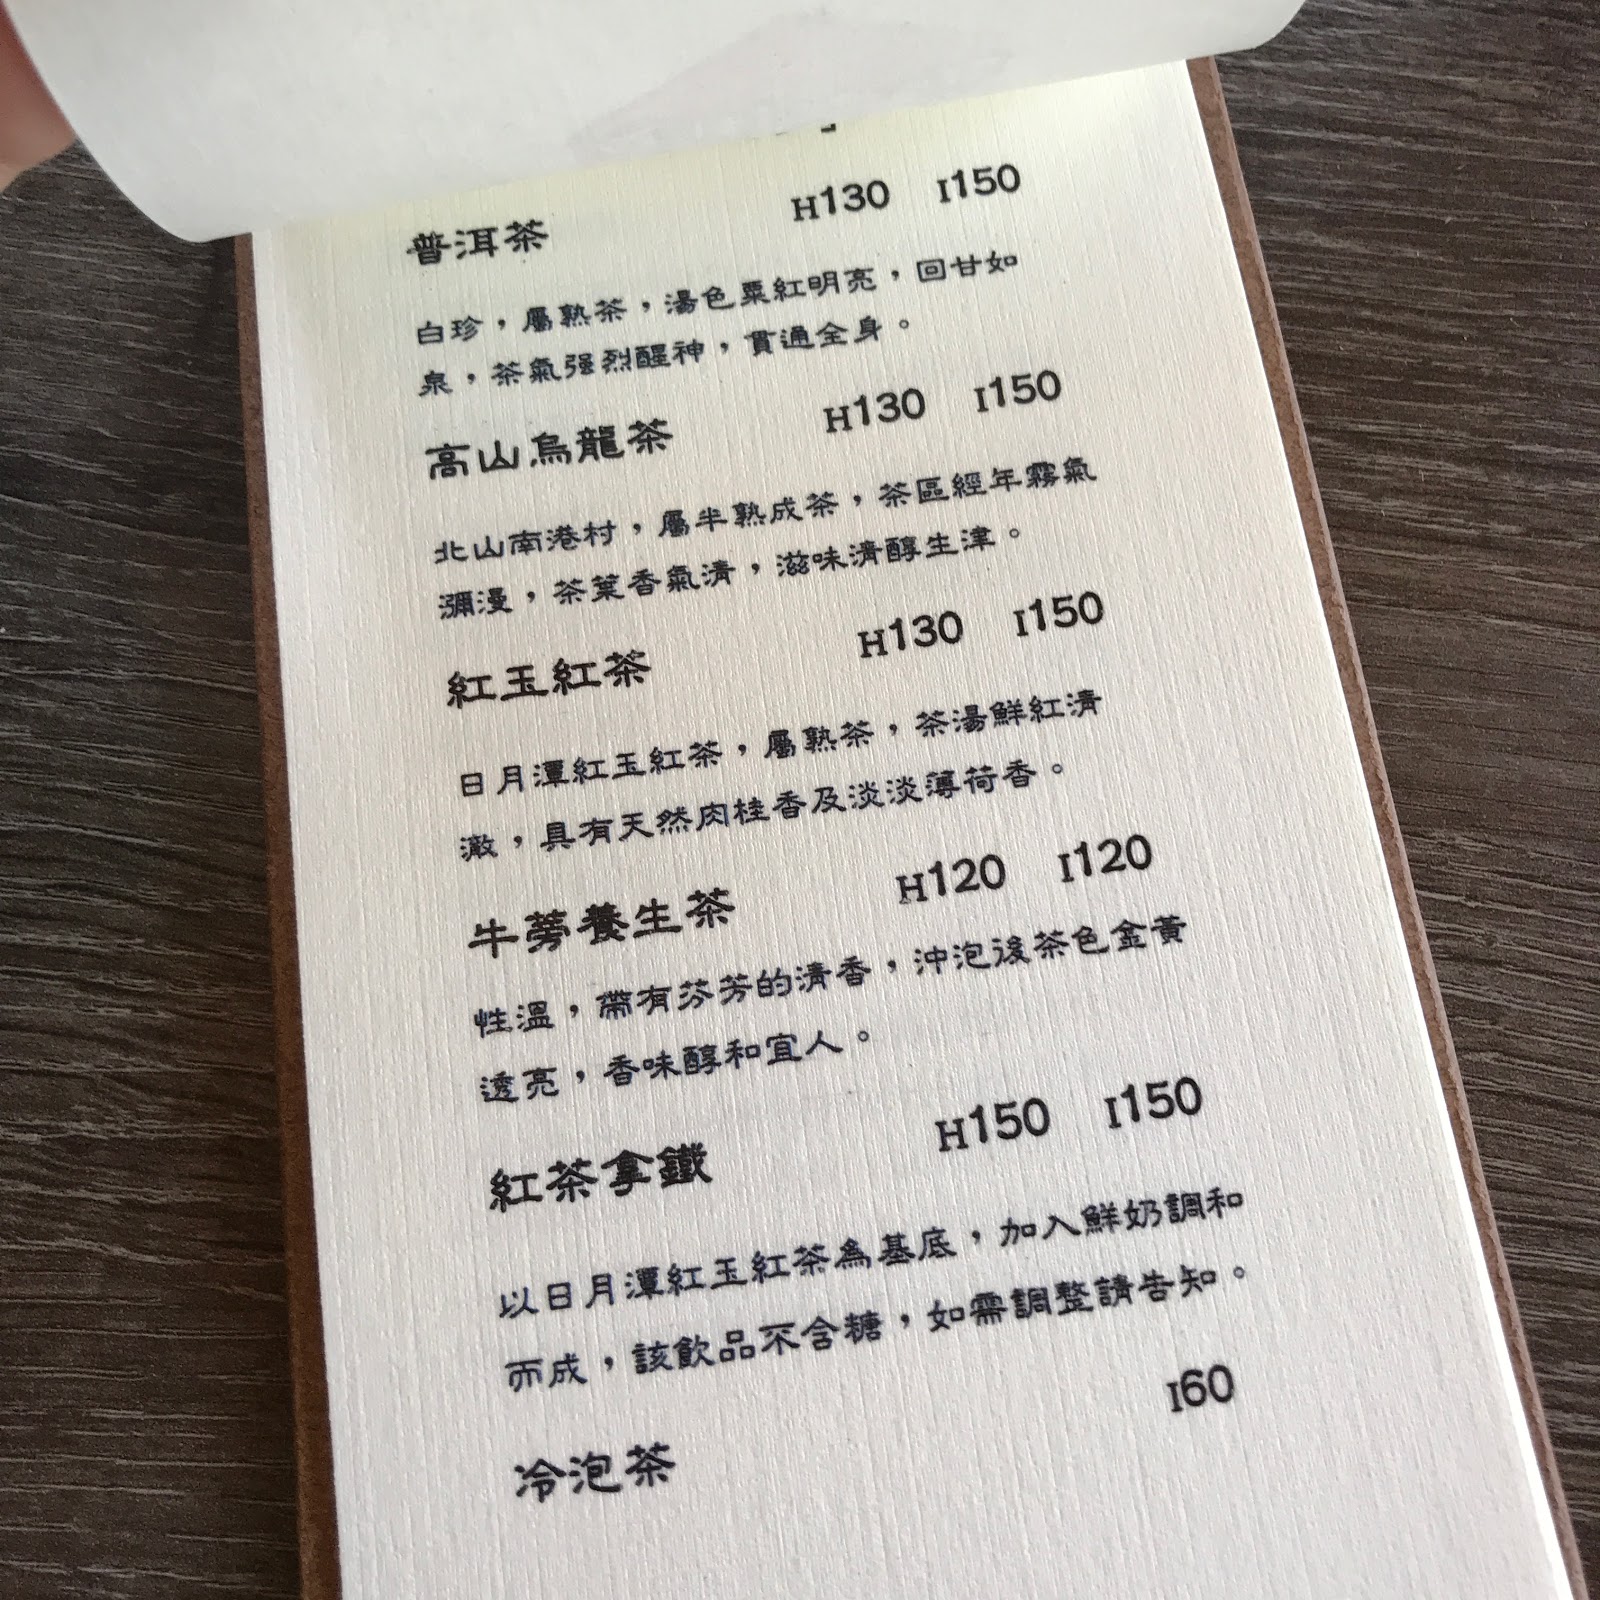 普洱茶 H130 I150
白珍，屬熟茶，湯色粟紅明亮，回甘如
泉，茶氣强烈醒神，貫通全身。
高山烏龍茶 H130 I150
北山南港村，屬半熟成茶，茶區經年霧氣
瀰漫，茶葉香氣清，滋味清醇生津。
紅玉紅茶 H130 I150
日月潭紅玉紅茶，屬熟茶，茶湯鮮紅清
澈，具有天然肉桂香及淡淡薄荷香。
牛蒡養生茶 H120 I120
性溫，帶有芬芳的清香，沖泡後茶色金黃
透亮，香味醇和宜人。
紅茶拿鐵 H150 I150
以日月潭紅玉紅茶為基底，加入鮮奶調和
而成，該飲品不含糖，如需調整請告知。
冷泡茶 I60